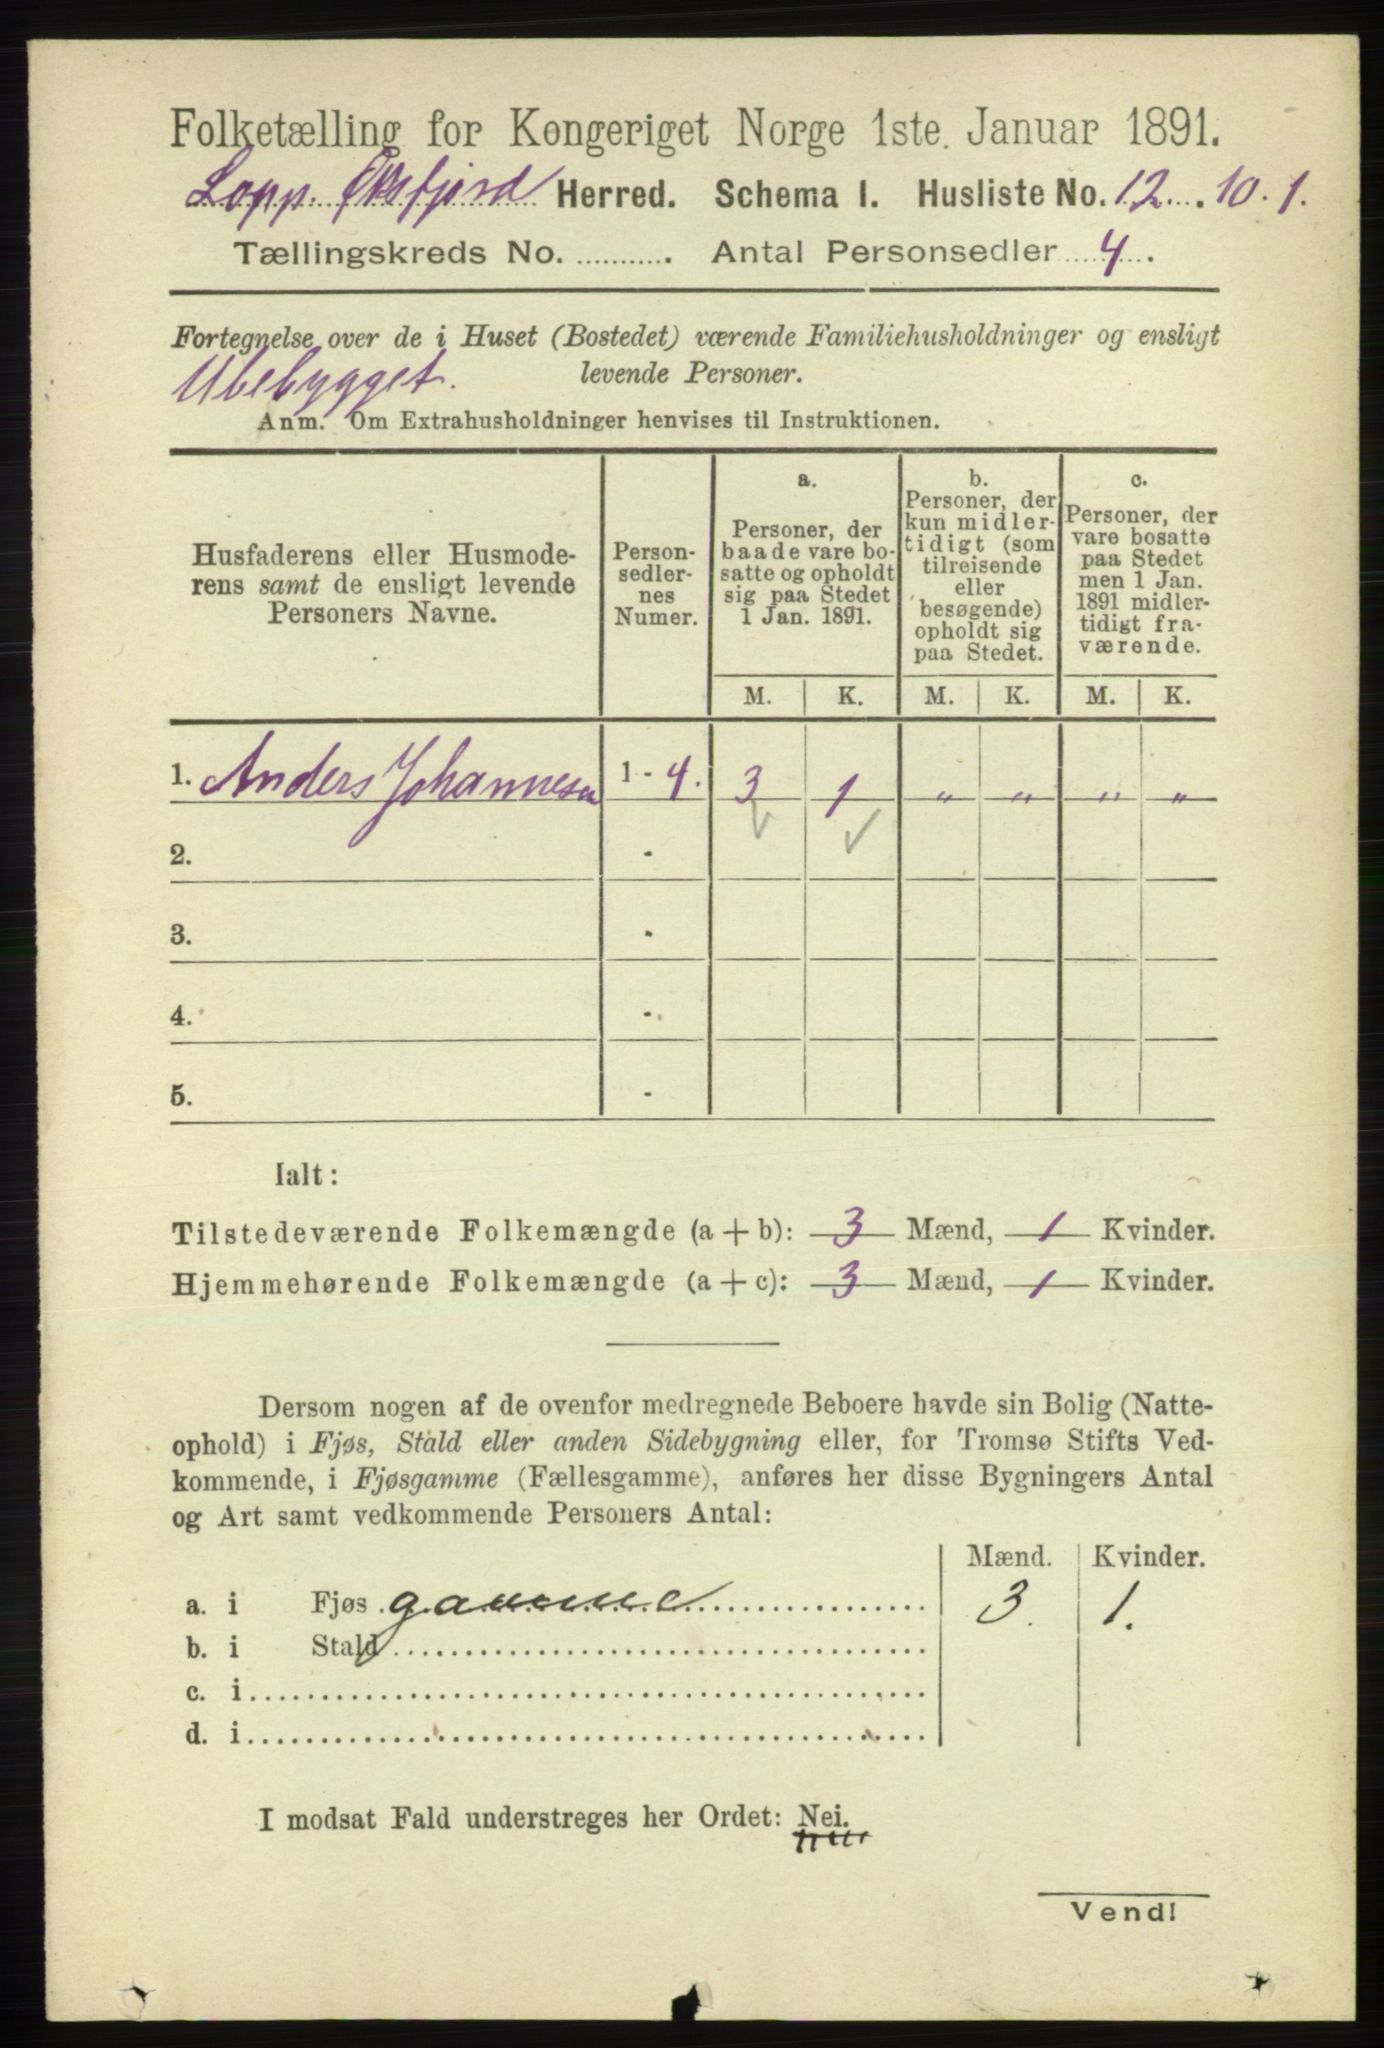 Folketælling for Kongeriget Norge 1ste Januar 1891.
Lopp. Øksfjord Herred. Schema 1. Husliste No. 12. 10.1.
Tællingskreds No. ........... Antal Personsedler 4.
Fortegnelse over de i Huset (Bostedet) værende Familiehusholdninger og ensligt
levende Personer.
Ubebygget.
Anm. Om Extrahusholdninger henvises til Instruktionen.
Husfaderens eller Husmode-
rens samt de ensligt levende
Personers Navne.
Person-
sedler-
nes
Numer.
a.
Personer, der
baade vare bo-
satte og opholdt
sig paa Stedet
1 Jan. 1891.
b.
Personer, der
kun midler-
tidigt (som
tilreisende
eller
besøgende)
opholdt sig
paa Stedet.
c.
Personer, der
vare bosatte
paa Stedet
men 1 Jan.
1891 midler-
tidigt fra-
værende.
M. K. M. K. M. K.
1. Anders Johannesen 1 - 4. 3 1 " " " "
2. -
3. -
4. -
5. -
Ialt:
Tilstedeværende Folkemængde (a + b): 3 Mænd, 1 Kvinder.
Hjemmehørende Folkemængde (a + c): 3 Mænd, 1 Kvinder.
Dersom nogen af de ovenfor medregnede Beboere havde sin Bolig (Natte-
ophold) i Fjøs, Stald eller anden Sidebygning eller, for Tromsø Stifts Ved-
kommende, i Fjøsgamme (Fællesgamme), anføres her disse Bygningers Antal
og Art samt vedkommende Personers Antal:
Mænd. Kvinder.
a. i Fjøs gamme 3. 1.
b. i Stald
c. i
d. i
I modsat Fald understreges her Ordet: Nei.
Vend!